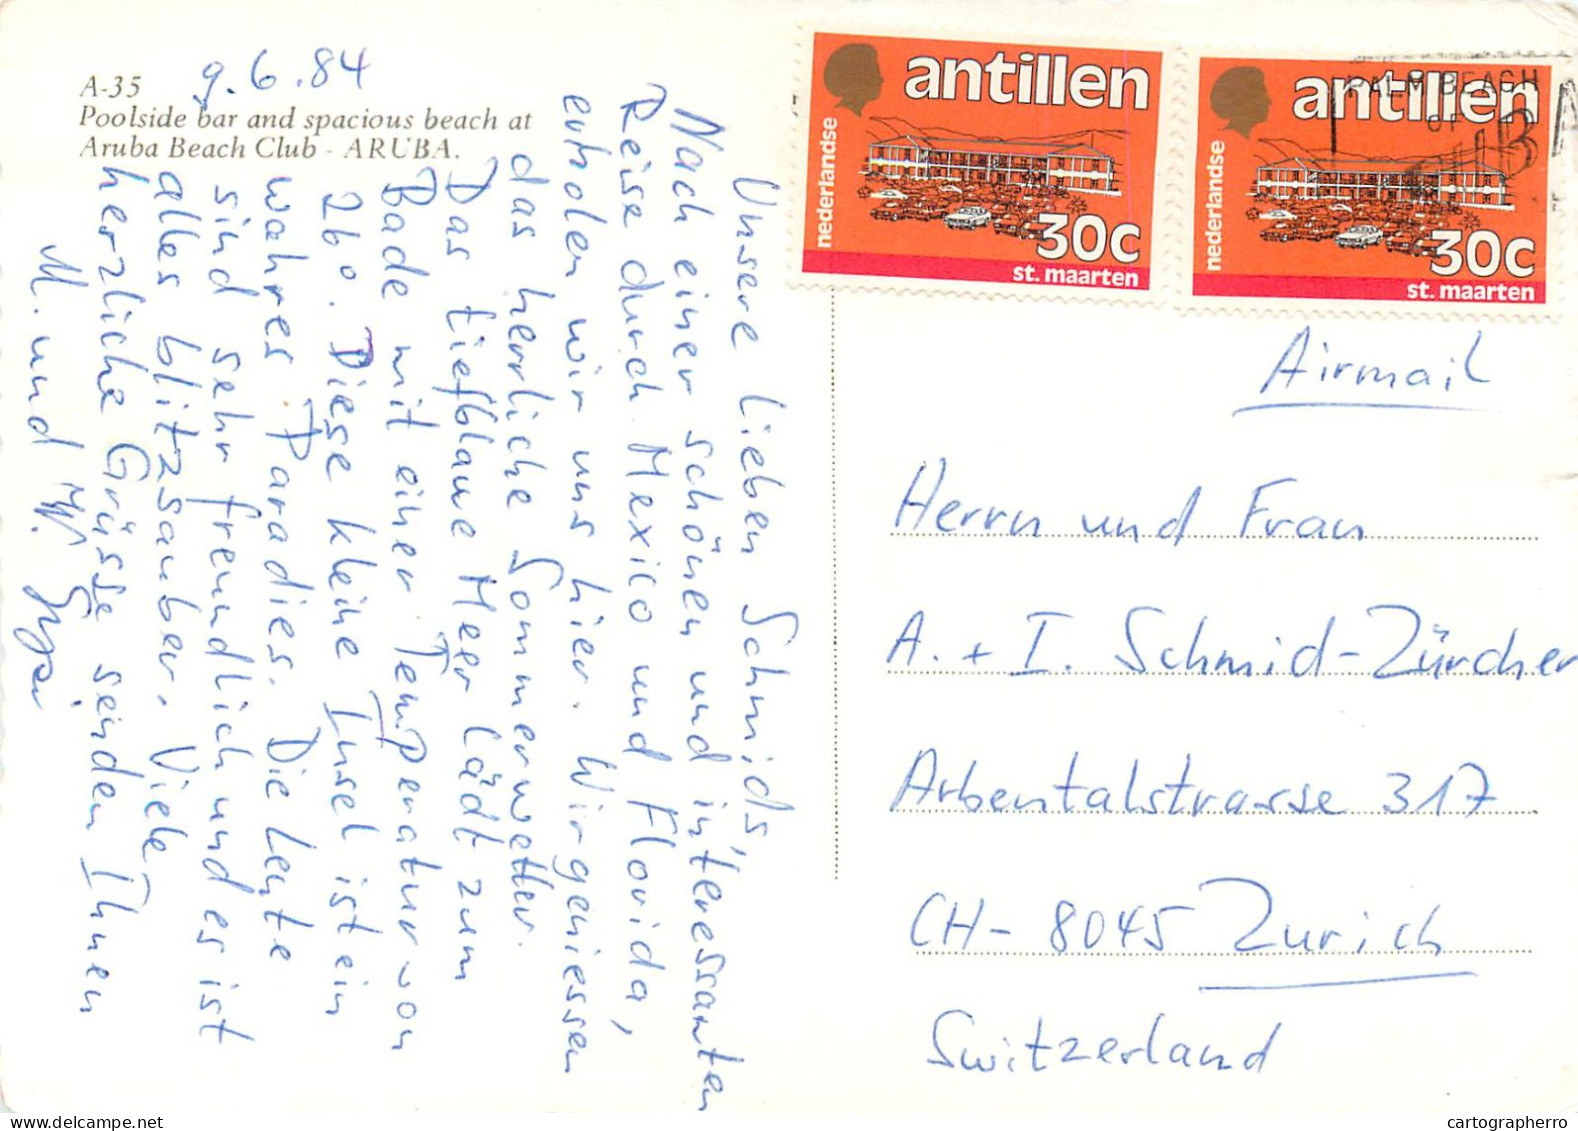 A-35
Poolside bar and spacious beach at
Aruba Beach Club - ARUBA.
9.6.84
Unsere lieben Schmids,
Nach einer schönen und interessanten
Reise durch Mexico und Florida,
erholen wir uns hier. Wir geniessen
das herrliche Sommerwetter.
Das tiefblaue Meer lädt zum
Bade mit einer Temperatur von
26°. Diese kleine Insel ist ein
wahres Paradies. Die Leute
sind sehr freundlich und es ist
alles blitzsauber. Viele
herzliche Grüsse senden Ihnen
M. und W.
nederlandse antillen
30c
st. maarten
nederlandse antillen
30c
st. maarten
PALM BEACH
OF
Airmail
Herrn und Frau
A. + I. Schmid-Zürcher
Arbentalstrasse 317
CH-8045 Zürich
Switzerland
delcampe.net
cartographerro